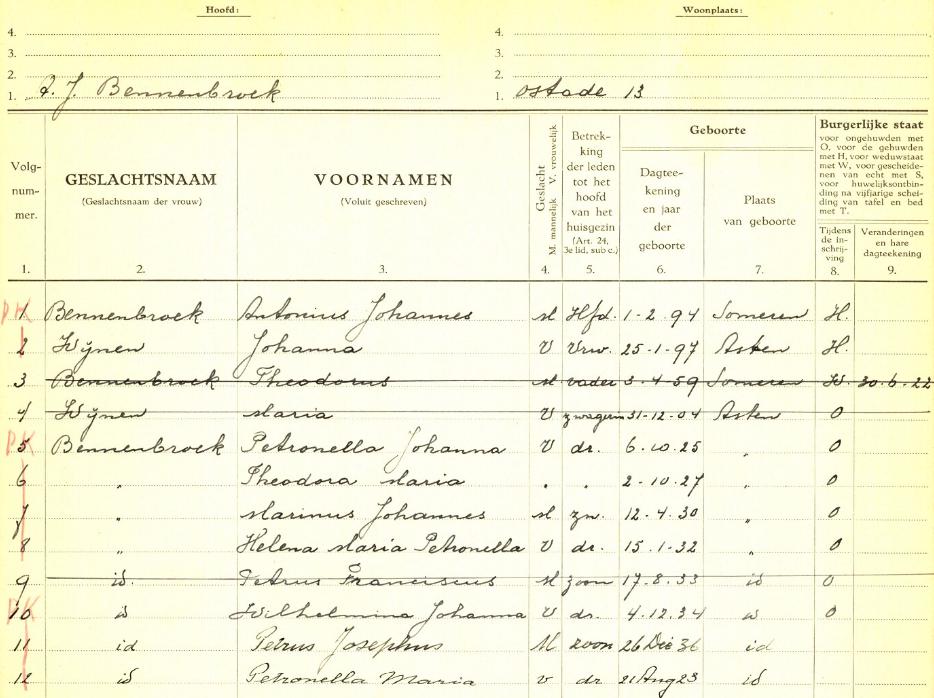 Hoofd: Woonplaats:
4. 4.
3. 3.
2. 2.
1. A. J. Bennenbroek 1. Ostade 13
Volg-
num-
mer.
1.
GESLACHTSNAAM
(Geslachtsnaam der vrouw)
2.
VOORNAMEN
(Voluit geschreven)
3.
Geslacht
M. mannelijk V. vrouwelijk
4.
Betrek-
king
der leden
tot het
hoofd
van het
huisgezin
(Art. 24,
3e lid, sub c.)
5.
Geboorte
Dagtee-
kening
en jaar
der
geboorte
6.
Plaats
van geboorte
7.
Burgerlijke staat
voor ongehuwden met
O, voor de gehuwden
met H, voor weduwstaat
met W, voor gescheide-
nen van echt met S,
voor huwelijksontbin-
ding na vijfjarige schei-
ding van tafel en bed
met T.
Tijdens
de in-
schrij-
ving
8.
Veranderingen
en hare
dagteekening
9.
PK 1 Bennenbroek Antonius Johannes M Hfd. 1-2.94 Someren H.
2 Wijnen Johanna V Vrw. 25-1-97 Asten H.
3 Bennenbroek Theodorus M vader 3-4-59 Someren W. 30.6.22
4 Wijnen Maria V zwagerin 31-12-04 Asten O
PK 5 Bennenbroek Petronella Johanna V dr. 6.10.25 " O
6 " Theodora Maria " " 2-10.27 " O
7 " Marinus Johannes M zn. 12.4.30 " O
8 " Helena Maria Petronella V dr. 15.1-32 " O
9 id. Petrus Franciscus M zoon 17.8.33 id O
PK 10 id Wilhelmina Johanna V dr. 4.12.34 id O
11 id Petrus Josephus M zoon 26 Dec 36 id
12 id Petronella Maria v dr 21 Aug 23 id